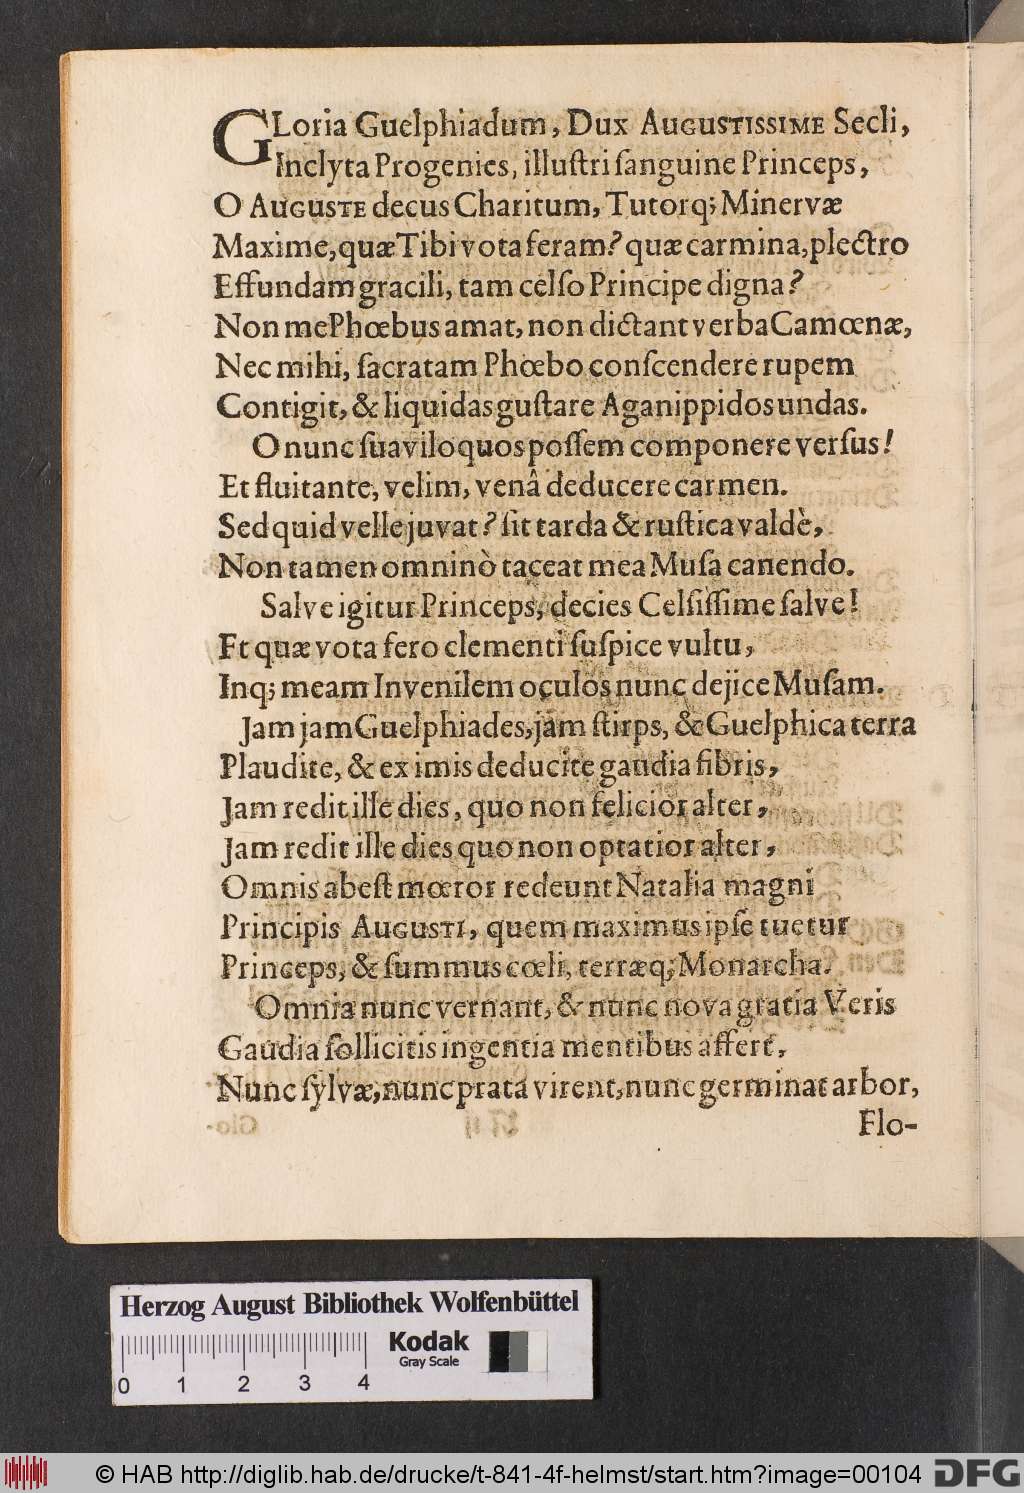 GLoria Guelphiadum, Dux AUGUSTISSIME Secli,
Inclyta Progenies, illuſtri ſanguine Princeps,
O AUGUSTE decus Charitum, Tutorq; Minervæ
Maxime, quæ Tibi vota feram? quæ carmina, plectro
Effundam gracili, tam celſo Principe digna?
Non me Phœbus amat, non dictant verba Camœnæ,
Nec mihi, ſacratam Phœbo conſcendere rupem
Contigit, & liquidas guſtare Aganippidos undas.
O nunc ſuaviloquos poſſem componere verſus!
Et fluitante, velim, venâ deducere carmen.
Sed quid velle juvat? ſit tarda & ruſtica valdè,
Non tamen omninò taceat mea Muſa canendo.
Salve igitur Princeps, decies Celſiſſime ſalve!
Et quæ vota fero clementi ſuſpice vultu,
Inq; meam Invenilem oculos nunc dejice Muſam.
Jam jam Guelphiades, jam ſtirps, & Guelphica terra
Plaudite, & ex imis deducite gaudia fibris,
Jam redit ille dies, quo non felicior alter,
Jam redit ille dies quo non optatior alter,
Omnis abeſt mœror redeunt Natalia magni
Principis AUGUSTI, quem maximus ipſe tuetur
Princeps, & ſummus cœli, terræq; Monarcha.
Omnia nunc vernant, & nunc nova gratia Veris
Gaudia ſollicitis ingentia mentibus affert,
Nunc ſylvæ, nunc prata virent, nunc germinat arbor,
Flo-
Herzog August Bibliothek Wolfenbüttel
Kodak
Gray Scale
0 1 2 3 4
© HAB http://diglib.hab.de/drucke/t-841-4f-helmst/start.htm?image=00104
DFG